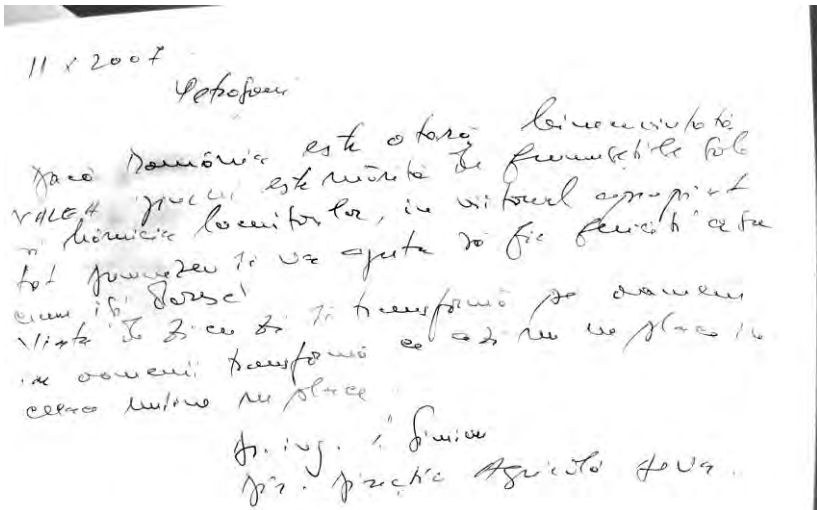 11 X 2007
Petroșani
Dacă România este o țară binecuvîntată
VALEA Jiului este mîndră de frumusețile sale
și hărnicia locuitorilor, în viitorul apropiat
tot Dumnezeu îi va ajuta să fie fericiți așa
cum își doresc
Viața de zi cu zi îi transformă pe oameni
iar oamenii transformă ce azi nu ne place în
ceea mîine ne place
dr. ing. I
Dir. Direcția Agricolă Deva.